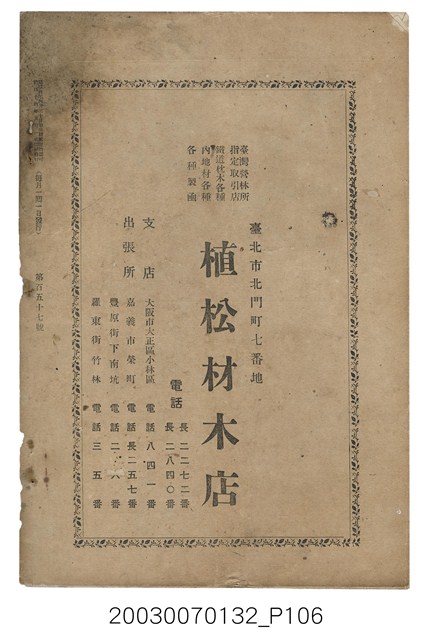 臺灣營林所
指定取引店
鐵道枕木各種
內地材各種
各種製函
臺北市北門町七番地
植松材木店
電話 長二二七二番
長二八四〇番
支店 大阪市大正區小林區 電話八四一番
出張所 嘉義市榮町 電話長二五七番
豐原街下南坑 電話二八番
羅東街竹林 電話三五番
(每月一回一日發行)
第百五十七號
20030070132_P106